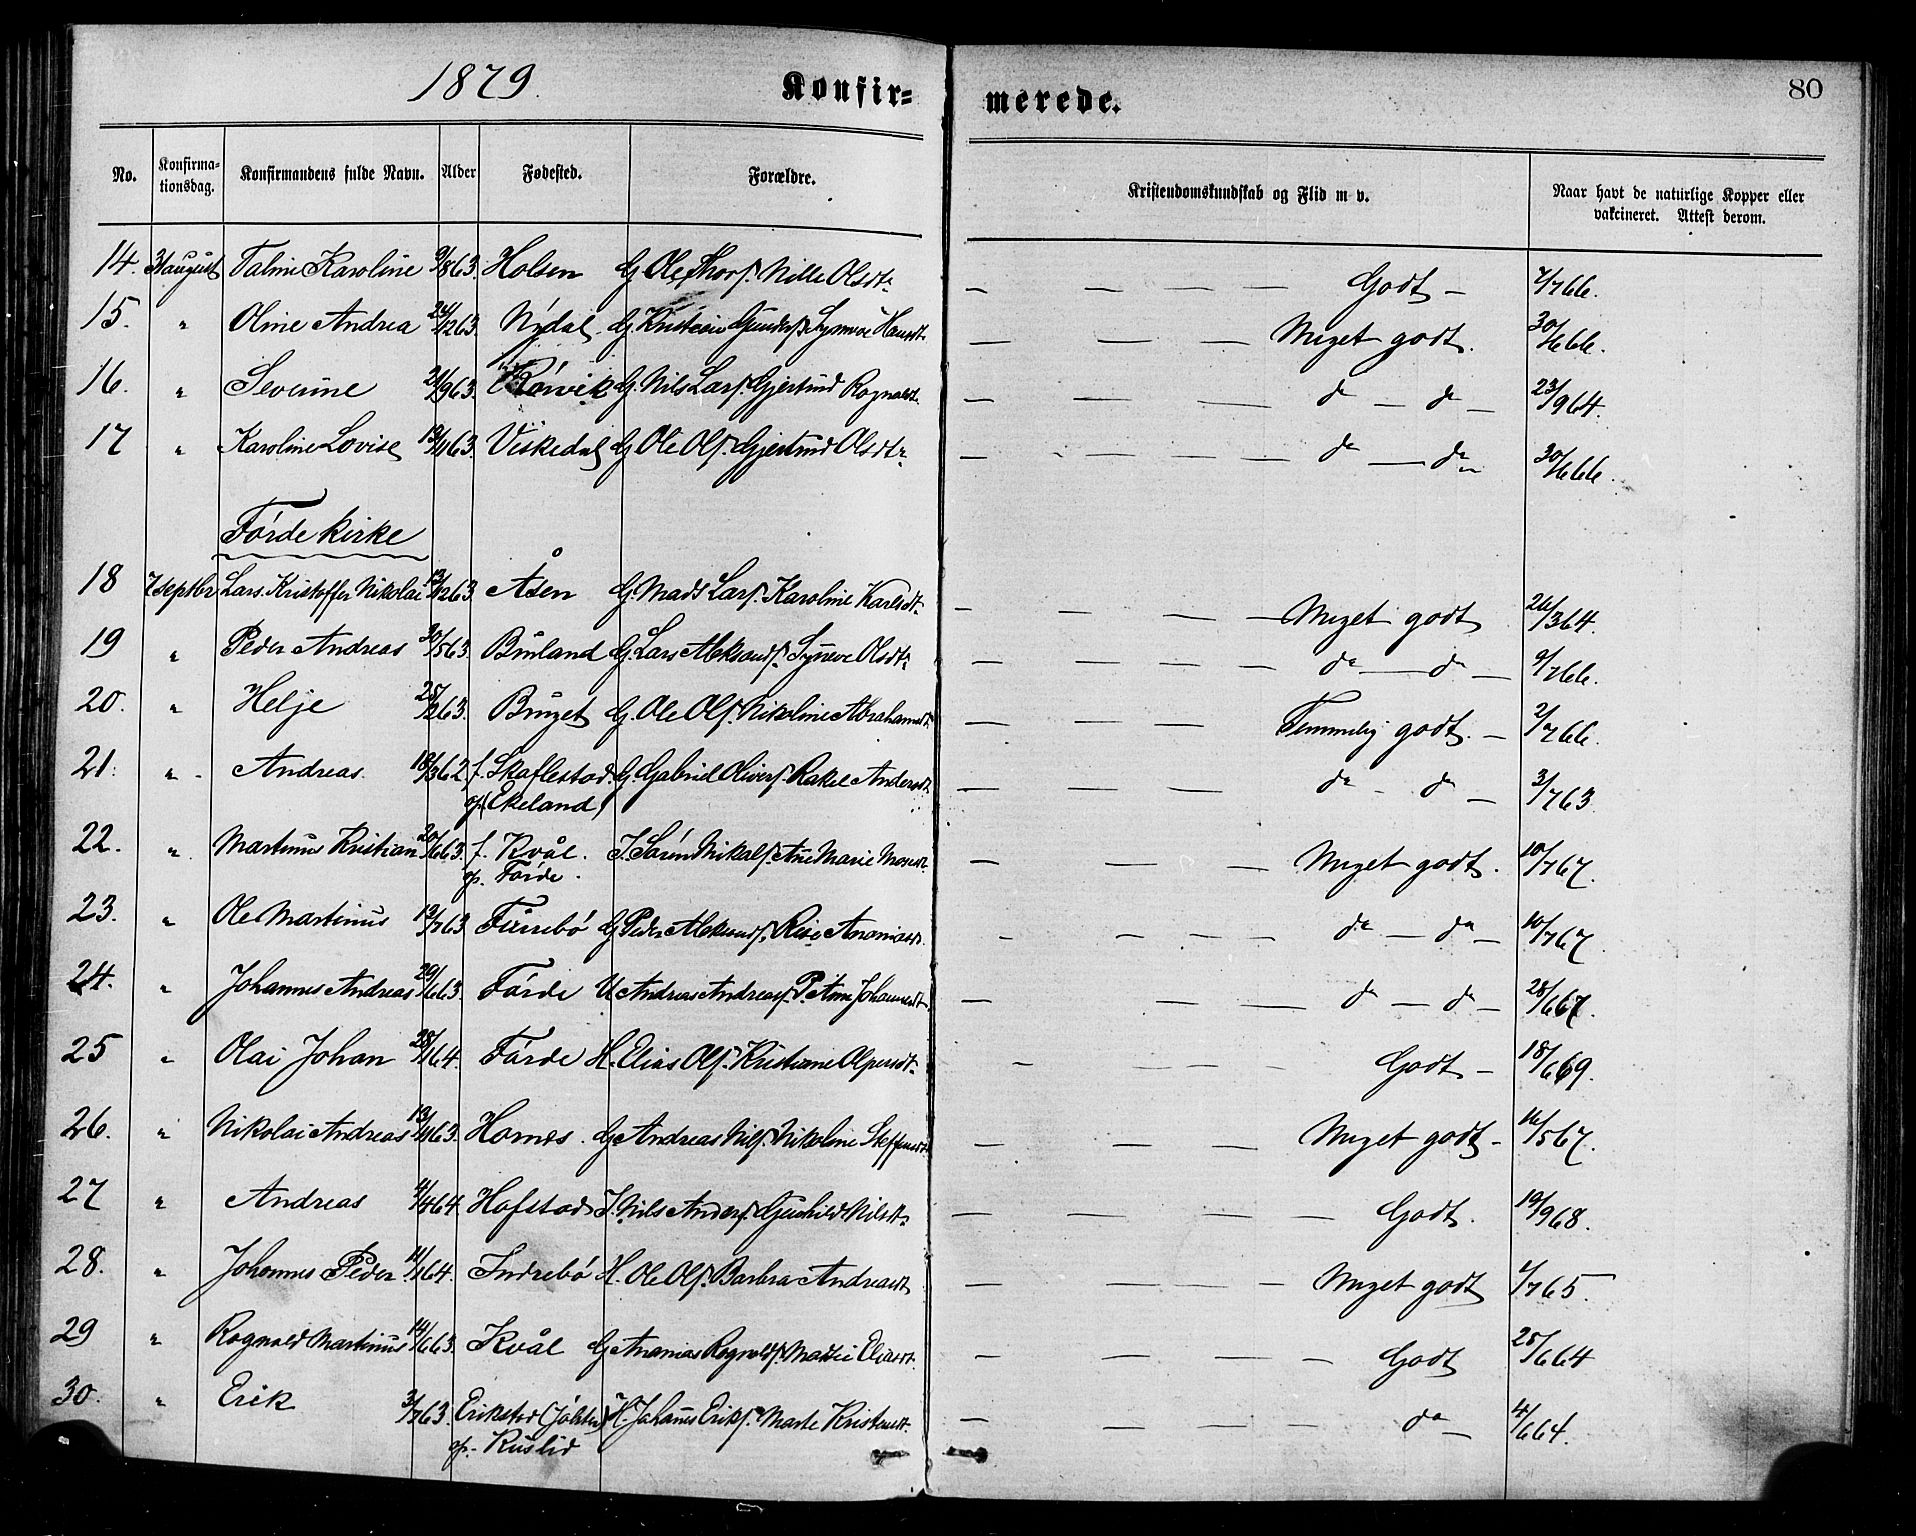 1879.
Konfir=
merede.
80
No. Konfirma-tionsdag. Konfirmandens fulde Navn. Alder Fødested. Forældre. Kristendomskundskab og Flid m v. Naar havt de naturlige Kopper eller vakcineret. Attest derom.
14. 31 august Taline Karoline 9/8 63. Holsen G. Ole Thors. Nille Olsdtr — — — — Godt — 7/7 66.
15. " Oline Andrea 24/12 63. Nydal G. Kristian Gunders. Synneve Hansdt. — — — Meget godt. 30/6 66.
16. " Severine 21/9 63. Rörvik G. Nils Lars. Gjertrud Rognaldt. — — — d° — d° — 23/9 64.
17 " Karoline Lovise 13/11 63. Viskedal G. Ole Ols. Gjertrud Olsdtr — — — — d° — d° 30/6 66.
Förde kirke
18 7 septbr Lars Kristoffer Nikolai 13/12 63. Åsen G. Mads Lars. Karoline Karlsdt. — — — Meget godt 26/3 64.
19 " Peder Andreas 30/5 63. Bruland G. Lars Aleksand. Syneve Olsdtr — — — — d° — d° — 9/7 66.
20. " Helje 25/2 63. Bruget G. Ole Ols. Nikoline Abrahamsdt. — — — Temmelig godt. — 2/7 66.
21. " Andreas. 18/3 62. f. Skaflestad G. Gabriel Olivers. Rakel Andersdt. — — — d° - d° — 3/7 63.
op. Ekeland
22. " Martinus Kristian 20/6 63. f. Kvål. I. Sörén Nikols. Ane Marie Mosesdt. — — — Meget godt. 10/7 67.
op. Förde.
23. " Ole Martinus 19/7 63 Furebö G. Peder Aleksand. Rise Ananiasdt. — — — — d° — d° — 10/7 67.
24. " Johannes Andreas 29/6 63. Förde U. Andreas Andreas. P. Ane Johannesdt. — — — d° — d° — 28/6 67.
25 " Olai Johan 28/1 64. Förde H. Elias Ols. Kristiane Alpersdt. — — — — Godt — 18/6 69.
26. " Nikolai Andreas 13/11 63. Hornes. G. Andreas Nils. Nikoline Steffensdt. — — — Meget godt — 16/5 67.
27 " Andreas 4/4 64. Hafstad I. Nils Anders. Gunhild Nilsdt. — — — — — Godt. 19/9 68.
28. " Johannes Peder 11/1 64. Indrebö H. Ole Ols. Barbra Andreasdt. — — — — — Meget godt 1/7 65
29 " Rognald Martinus 14/6 63. Kvål G. Ananias Rognald. Mattie Eliasdt. — — — — Godt 25/6 64
30. " Erik 3/7 63. Erikstad (Jölster) H. Johanes Eriks. Marte Kristensdt. — — — — d° — 4/6 64.
op. Ruslid